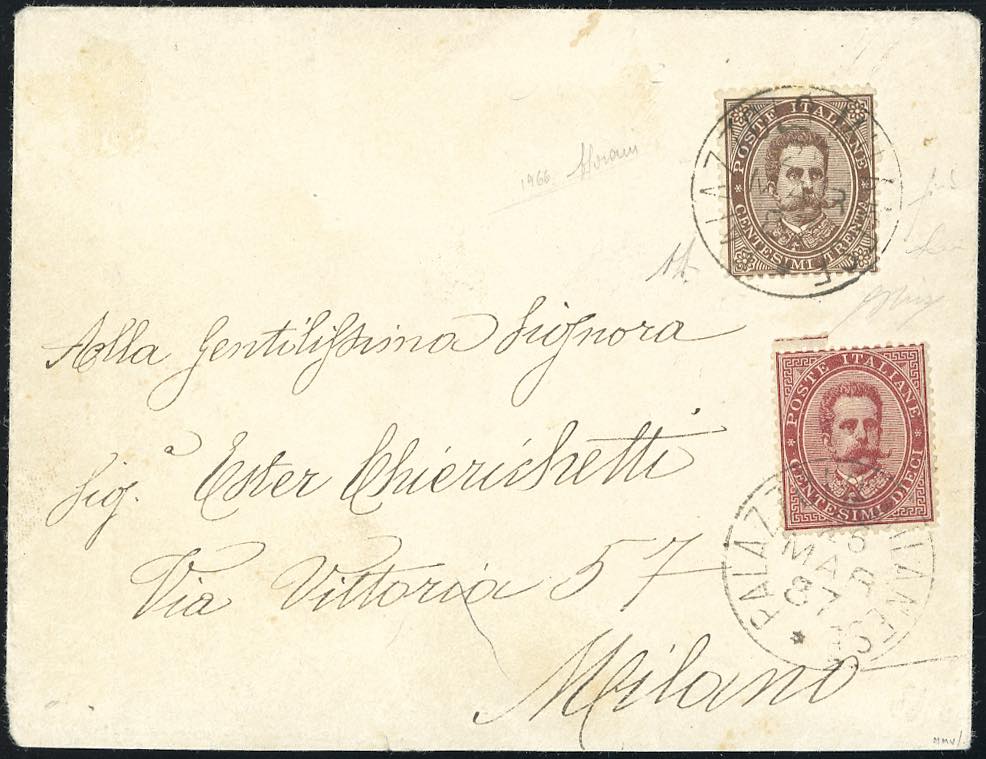 POSTE ITALIANE
CENTESIMI TRENTA
1966
Alla Gentilissima Signora
Sig.ª Ester Chierichetti
Via Vittoria 57
Milano
* POSTE ITALIANE *
CENTESIMI DIECI
PALAZZ
MAR
87
*